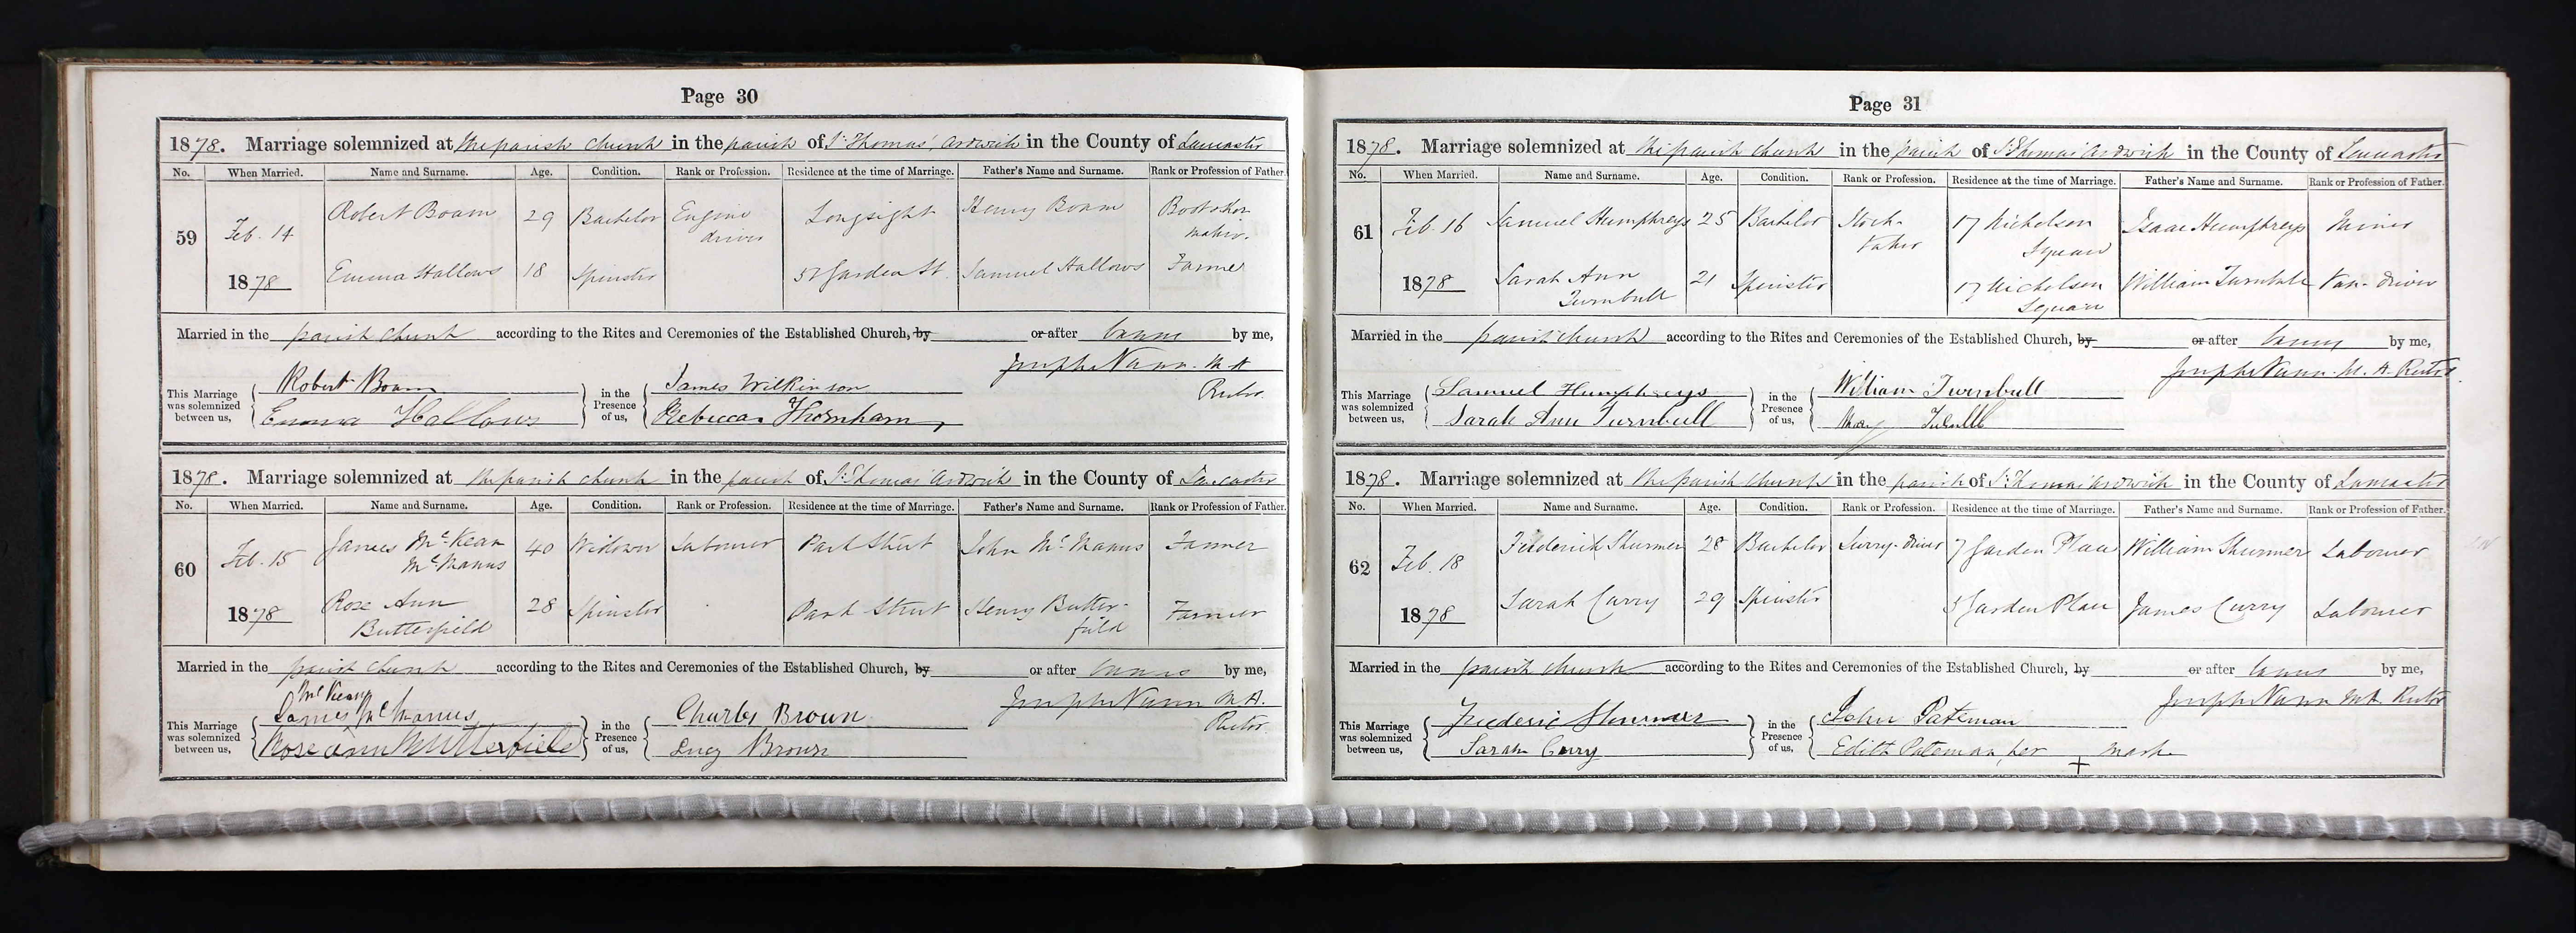 Page 30
1878. Marriage solemnized at the parish church in the parish of St Thomas' Ardwick in the County of Lancaster
No. When Married. Name and Surname. Age. Condition. Rank or Profession. Residence at the time of Marriage. Father's Name and Surname. Rank or Profession of Father.
59 Feb. 14 Robert Boam 29 Bachelor Engine driver Longsight Henry Boam Boot & Shoe maker.
1878 Emma Hallows 18 Spinster Garden St. Samuel Hallows Farmer
Married in the parish church according to the Rites and Ceremonies of the Established Church, by or after banns by me,
Joseph Nunn. M A
Rector
This Marriage was solemnized between us, Robert Boam in the Presence of us, James Wilkinson
Emma Hallows Rebecca Thornham
1878. Marriage solemnized at the parish church in the parish of St Thomas' Ardwick in the County of Lancaster
No. When Married. Name and Surname. Age. Condition. Rank or Profession. Residence at the time of Marriage. Father's Name and Surname. Rank or Profession of Father.
60 Feb. 15 James McKean McManus 40 Widower Labourer Park Street John McManus Farmer
1878 Rose Ann Butterfield 28 Spinster Park Street Henry Butterfield Farmer
Married in the parish church according to the Rites and Ceremonies of the Established Church, by or after banns by me,
Joseph Nunn M.A.
Rector
McKean
This Marriage was solemnized between us, James McManus in the Presence of us, Charles Brown
Rose ann Butterfield Lucy Brown
Page 31
1878. Marriage solemnized at the parish church in the parish of St Thomas' Ardwick in the County of Lancaster
No. When Married. Name and Surname. Age. Condition. Rank or Profession. Residence at the time of Marriage. Father's Name and Surname. Rank or Profession of Father.
61 Feb. 16 Samuel Humphreys 25 Bachelor Stock-taker 17 Nicholson Square Isaac Humphreys Miner
1878 Sarah Ann Turnbull 21 Spinster 17 Nicholson Square William Turnbull Van-driver
Married in the parish church according to the Rites and Ceremonies of the Established Church, by or after banns by me,
Joseph Nunn. M. A. Rector
This Marriage was solemnized between us, Samuel Humphreys in the Presence of us, William Turnbull
Sarah Ann Turnbull Mary
1878. Marriage solemnized at the parish church in the parish of St Thomas' Ardwick in the County of Lancaster
No. When Married. Name and Surname. Age. Condition. Rank or Profession. Residence at the time of Marriage. Father's Name and Surname. Rank or Profession of Father.
62 Feb. 18 Frederick Shurmer 28 Bachelor Lurry-driver 7 Garden Place William Shurmer Labourer
1878 Sarah Curry 29 Spinster 5 Garden Place James Curry Labourer
Married in the parish church according to the Rites and Ceremonies of the Established Church, by or after banns by me,
Joseph Nunn M A. Rector
This Marriage was solemnized between us, Frederic Shurmer in the Presence of us, John Pateman
Sarah Curry Edith Pateman, her + mark